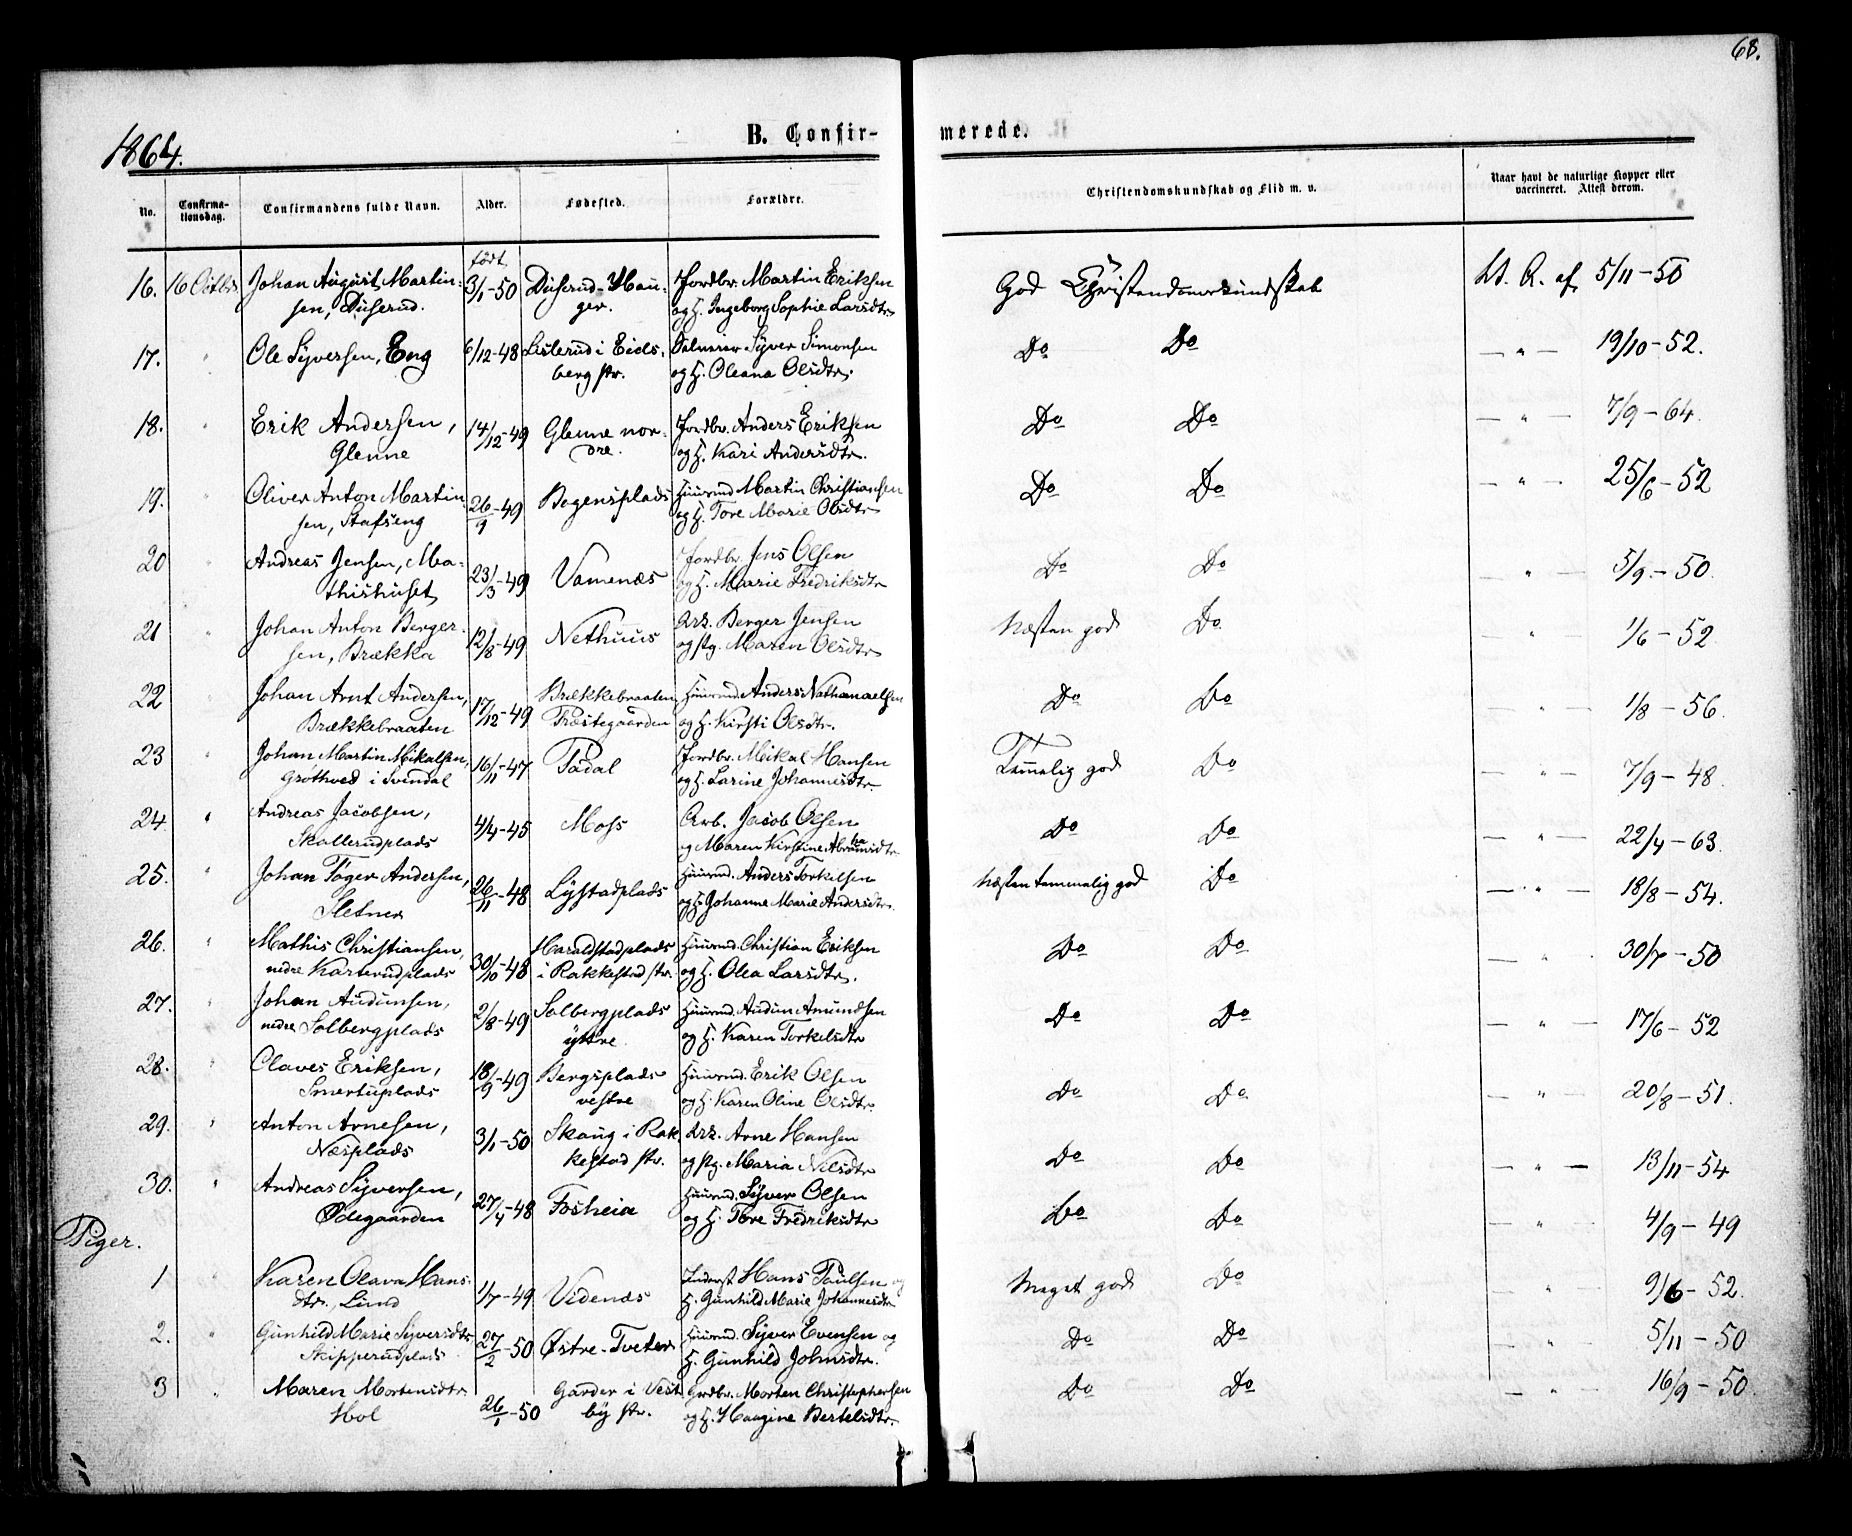 68.
1864.
B. Confir- merede.
No. Confirma-tionsdag. Confirmandens fulde Navn. Alder. Fødested. Forældre. Christendomskundskab og Flid m. v. Naar havt de naturlige Kopper eller vaccineret. Attest derom.
født
16. 16 Octbr Johan August Martin- 3/1-50 Duserud-Hau- Jordbr. Martin Eriksen God Christendomskundskab At. A. af 5/11-50
sen, Duserud. ger. og H. Ingeborg Sophie Larsdtr
17. " Ole Syversen, Eng 6/12-48 Listerud i Eids- Syver Simonsen Do Do — " — 19/10-52.
berg pr. og H. Oleana Olsdtr.
18. " Erik Andersen, 14/12-49 Glenne nor- Jordbr. Anders Eriksen Do Do — " — 7/9-64.
Glenne dre. og H. Kari Andersdtr.
19. " Oliver Anton Martin 26/9-49 Bogensplads Huusmd Martin Christiansen Do Do — " — 25/6-52
sen, Stafseng og H. Tore Marie Olsdtr
20 " Andreas Jensen, Ma- 23/3-49 Vamenæs Jordbr. Jens Olsen Do Do — " — 5/9-50.
thishuset og H. Marie Fredriksdtr
21 " Johan Anton Berger- 12/8-49 Nethuus Arb. Berger Jensen Næsten god Do. — " — 1/6-52
sen, Brækka og pg. Maren Olsdtr
22 " Johan Arnt Andersen, 17/12-49 Brækkebraaten Huusmd. Anders Nathanaelsen Do Do — " — 1/8-56.
Brækkebraaten Præstegaarden og H. Kirsti Olsdtr.
23 " Johan Martin Mikalsen, 16/11-47 Tadal Jordbr. Mikal Hansen Temmelig god Do — " — 7/9-48
Grothved i Svendal og H. Larine Johannesdtr.
24. " Andreas Jacobsen, 4/4-45 Moss Arb. Jacob Olsen Do Do — " — 22/4-63.
Skallerudplads og Maren Kirstine Abrahamsdtr
25. " Johan Tøger Andersen, 26/11-48 Lystadplads Huusmd. Anders Torkelsen Næsten temmelig god Do — " — 18/8-54.
Sletner og H. Johanne Marie Andersdtr.
26. " Mathis Christiansen, 30/10-48 Haraldstadplads Huusmd. Christian Eriksen Do Do — " — 30/7-50
nedre Karterudplads i Rakkestad pr. og H. Olea Larsdtr.
27. " Johan Audunsen, 2/8-49 Solbergplads Huusmd. Audun Amundsen Do Do — " — 17/6-52
nedre Solbergplads ytre og H. Karen Torkelsdtr
28. " Claves Eriksen, 18/9-49 Bergsplads Huusmd. Erik Olsen Do Do — " — 20/8-51.
Smertuplads vestre og H. Karen Oline Olsdtr.
29. " Anton Arnesen, 3/1-50 Skaug i Rak Arb. Arne Hansen Do Do — " — 13/11-54
Næsplads kestad pr. og pg. Maria Nilsdtr
30. " Andreas Syversen, 27/4-48 Fosheia Huusmd. Syver Olsen Do Do — " — 4/9-49
Ødegaarden og H. Tore Fredriksdtr
Piger.
1 " Karen Olava Hans- 1/7-49 Videnæs Inderst Hans Paulsen og Meget god Do — " — 9/6-52.
dtr., Lund H. Gunhild Marie Johannesdtr
2. " Gunhild Marie Syversdtr 27/2-50 Østre-Tveter Huusmd. Syver Evensen og Do Do — " — 5/11-50
Skipperudplads H. Gunhild Johnsdtr.
3 " Maren Mortensdtr 26/1-50 Garder i Vest Grdbr. Morten Christophersen Do Do — " — 16/9-50.
Hol by pr. og H. Haagine Bertelsdtr.